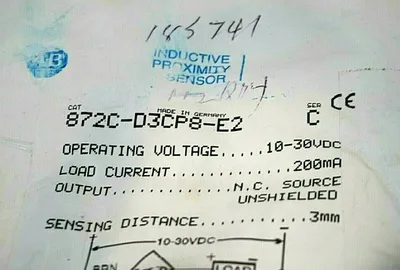 185741
INDUCTIVE
PROXIMITY
SENSOR
AB
CAT
MADE IN GERMANY
SER
CE
872C-D3CP8-E2
C
OPERATING VOLTAGE.....10-30VDC
LOAD CURRENT............200mA
OUTPUT............N.C. SOURCE
UNSHIELDED
SENSING DISTANCE...........3mm
10-30VDC
BRN
LOAD